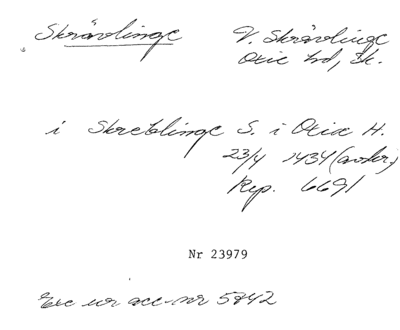 Skrävlinge
V. Skrävlinge
Oxie hd, Sk.
i Skreblinge S. i Oxia H.
23/4 1434 (avskr.)
Rep. 6691
Nr 23979
Exc ur acc-nr 5842